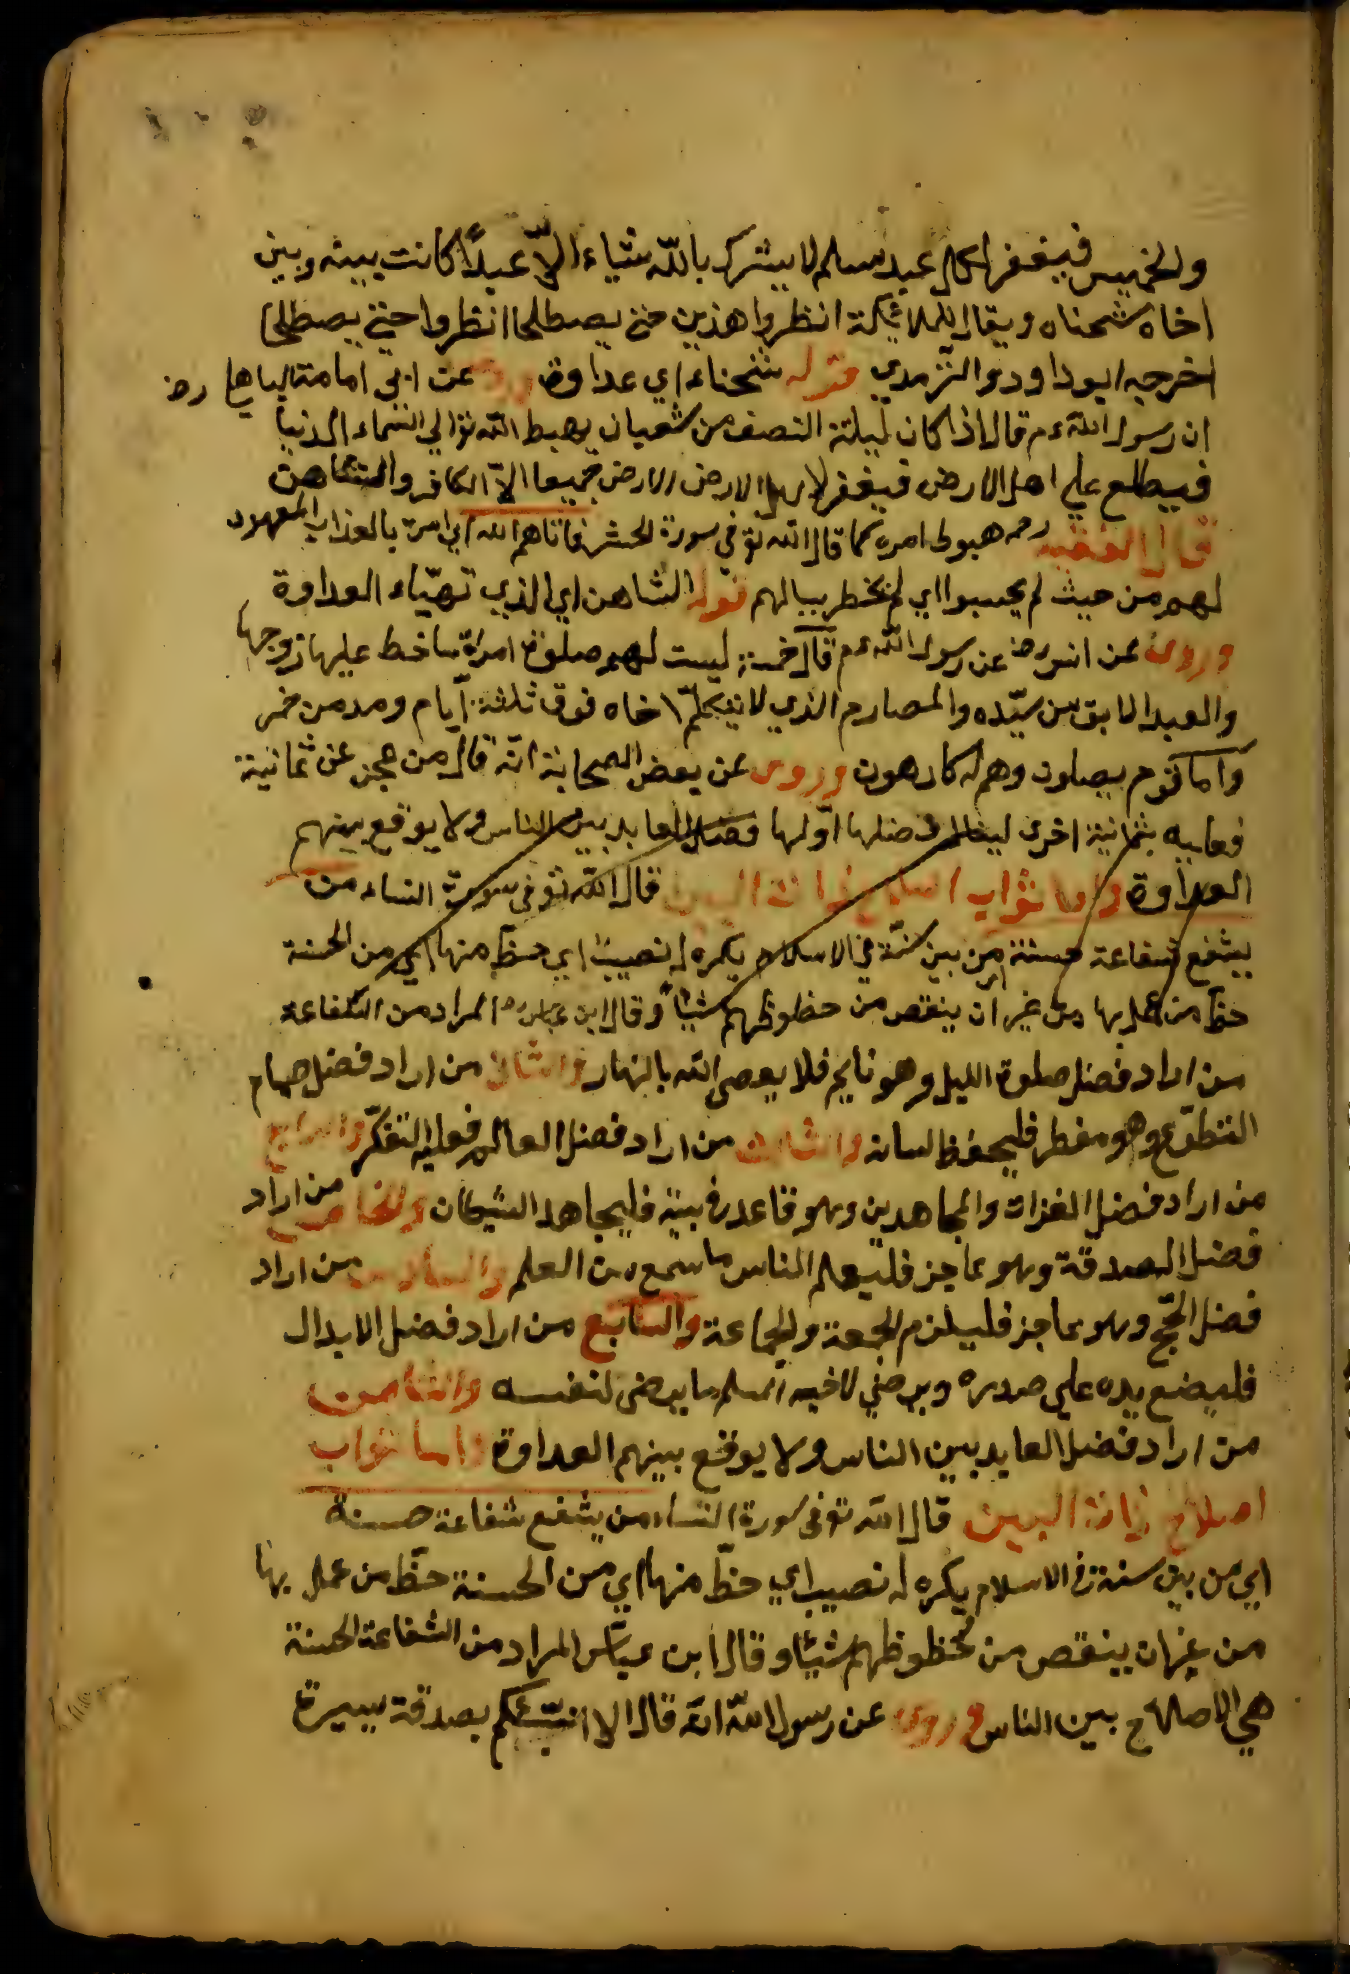 والخميس فيغفر لكل عبد مسلم لا يشرك بالله شياء الّا عبدًا كانت بينه وبين
اخاه شحناه ويقال للملائكة انظروا هذين حتى يصطلحا انظروا حتى يصطلحا
اخرجه ابوداود والترّمدي قوله شحناء اي عداوة وروى عن ابى امامة الباهلي رض
ان رسول الله ءم قال اذا كان ليلة النصف من شعبان يهبط الله تع الي السّماء الدنيا
فيطلع علي اهل الارض فيغفر لاهل الارض الارض جميعا الاّ الكافر والمشاهن
قال الفقيه رحمه هبوط امره كما قال الله تع في سورة الحشر فاتاهم الله اي امره بالعذاب المعهود
لهم من حيث لم يحسبوا اي لم يخطر ببالهم قوله الشاهن اي الذي تهيّاء العداوة
وروى عن انس رض عن رسول الله ءم قال خمسة ليست لهم صلوة امراة ساخط عليها زوجها
والعبد الابق من سيّده والمصارم الذي لا يتكلّم اخاه فوق ثلثة ايّام ومدمن خمر
وامام قوم يصلون وهم له كارهون وروى عن بعض الصحابة انه قال من عجز عن ثمانية
فعليه بثمانية اخرى لينال فضلها اوّلها فضل العابد بين الناس ولا يوقع بينهم
العداوة واما ثواب اصلاح ذات البين قال الله تع فى سورة النساء من
يشفع شفاعة حسنة اي من بين سنّة في الاسلام يكره له نصيب اي حظّ منها اي من الحسنة
حظّ من عمل بها من غير ان ينقص من حظوظهم شيًا وقال ابن عباس رض المراد من الشفاعة
من اراد فضل صلوة الليل وهو نايم فلا يعصي الله بالنهار والثاني من اراد فضل صيام
التطوّع وهو مفطر فليحفظ لسانه والثالث من اراد فضل العالم فعليه التفكّر والرابع
من اراد فضل الغزات والمجاهدين وهو قاعد في بيته فليجاهد الشيطان والخامس من اراد
فضل الصدقة وهو عاجز فليعلم الناس ما سمع من العلم والسادس من اراد
فضل الحجّ وهو عاجز فليلزم الجمعة والجماعة والسابع من اراد فضل الابدال
فليضع يده علي صدره ويرضي لاخيه المسلم ما يرضى لنفسه والثامن
من اراد فضل العابد بين الناس ولا يوقع بينهم العداوة واما ثواب
اصلاح ذات البين قال الله تع فى سورة النساء من يشفع شفاعة حسنة
اي من بين سنة في الاسلام يكره له نصيب اي حظّ منها اي من الحسنة حظّ من عمل بها
من غير ان ينقص من حظوظهم شيًا وقال ابن عباس المراد من الشفاعة الحسنة
هي الاصلاح بين الناس وروى عن رسول الله انه قال الا انبّئكم بصدقة يسيرة